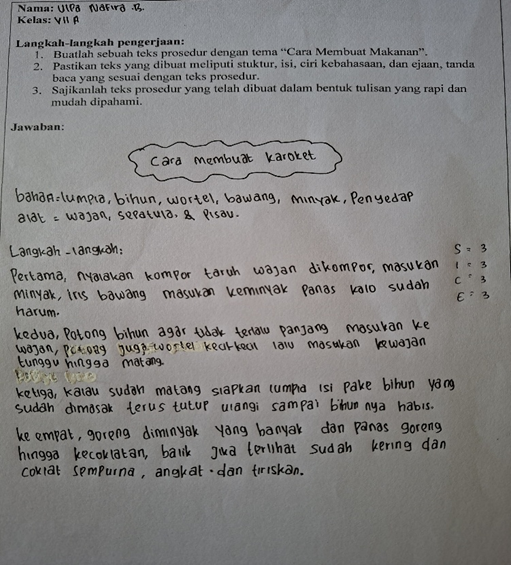 Nama: Ulpa Nafira .R.
Kelas: VII A
Langkah-langkah pengerjaan:
1. Buatlah sebuah teks prosedur dengan tema “Cara Membuat Makanan”.
2. Pastikan teks yang dibuat meliputi stuktur, isi, ciri kebahasaan, dan ejaan, tanda
baca yang sesuai dengan teks prosedur.
3. Sajikanlah teks prosedur yang telah dibuat dalam bentuk tulisan yang rapi dan
mudah dipahami.
Jawaban:
Cara membuat karoket
bahan=lumpia, bihun, wortel, bawang, minyak, Penyedap
alat = wajan, sepatula, & Pisau.
Langkah-langkah:
Pertama, nyalakan kompor taruh wajan dikompor, masukan
minyak, Iris bawang masukan keminyak panas kalo sudah
harum.
S = 3
I = 3
C = 3
E = 3
kedua, Potong bihun agar tidak terlalu panjang masukan ke
wajan, Potong juga wortel kecil-kecil lalu masukan kewajan
tunggu hingga matang.
ketiga, kalau sudah matang siapkan lumpia isi pake bihun yang
sudah dimasak terus tutup ulangi sampai bihun nya habis.
ke empat, goreng diminyak yang banyak dan panas goreng
hingga kecoklatan, balik jika terlihat sudah kering dan
coklat sempurna, angkat dan tiriskan.